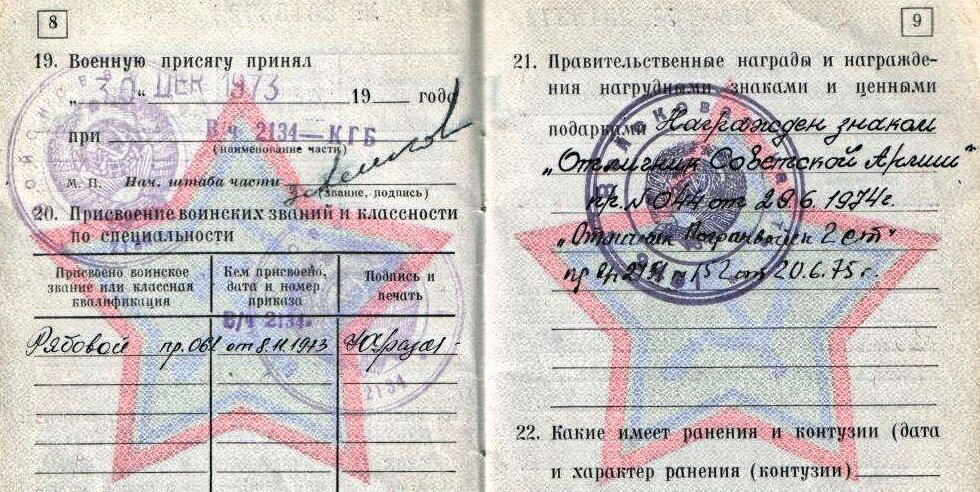 8
19. Военную присягу принял
„ 30 “ ДЕК 1973 19 года
при В/ч 2134—КГБ
(наименование части)
М. П. Нач. штаба части
(звание, подпись)
20. Присвоение воинских званий и классности
по специальности
Присвоено воинское звание или классная квалификация
Кем присвоено, дата и номер приказа
Подпись и печать
В/ч 2134
Рядовой пр. 061 от 8.11.1973
2134
9
21. Правительственные награды и награжде-
ния нагрудными знаками и ценными
подарками Награжден знаком
„Отличник Советской Армии“
пр. № 044 от 29.6.1974г.
„Отличник Погранвойск 2 ст“
от 20.6.75г.
22. Какие имеет ранения и контузии (дата
и характер ранения (контузии)